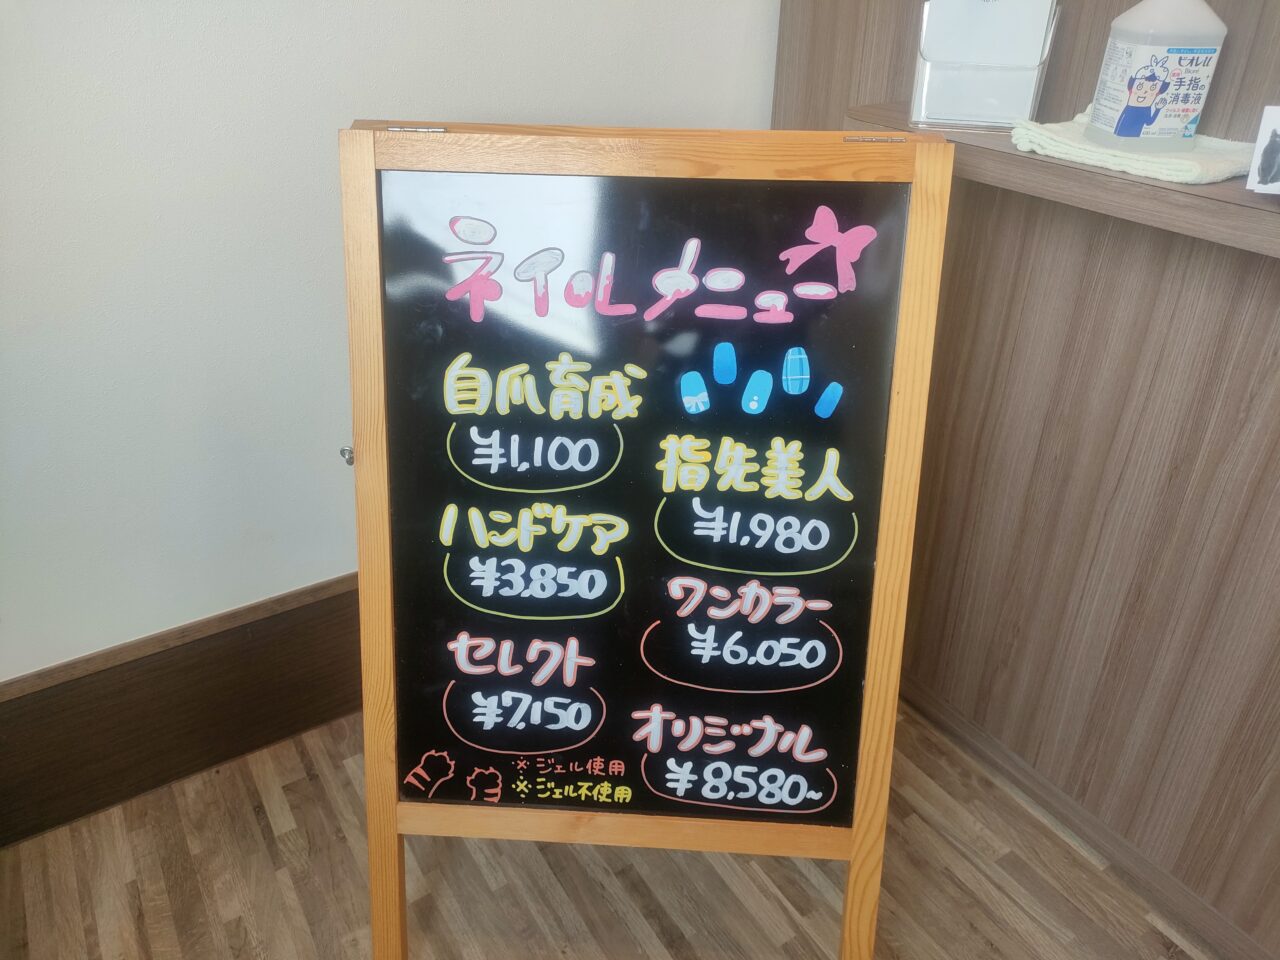 ネイルメニュー
自爪育成
¥1,100
指先美人
¥1,980
ハンドケア
¥3,850
ワンカラー
¥6,050
セレクト
¥7,150
オリジナル
¥8,580~
※ジェル使用
※ジェル不使用
ビオレu
手指の
消毒液